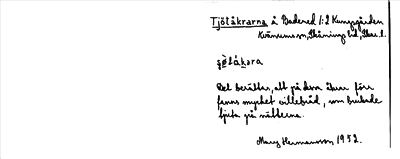 Tjötåkrarna å Badened 1:2 Kungsgården
Kvänums sn, Skånings hd, Skar. l.
çö̀låk̬ara
Det berättas, att på dessa åkrar förr
fanns mycket villebråd, som brukade
tjuta på nätterna.
Mary Hermansson 1952.